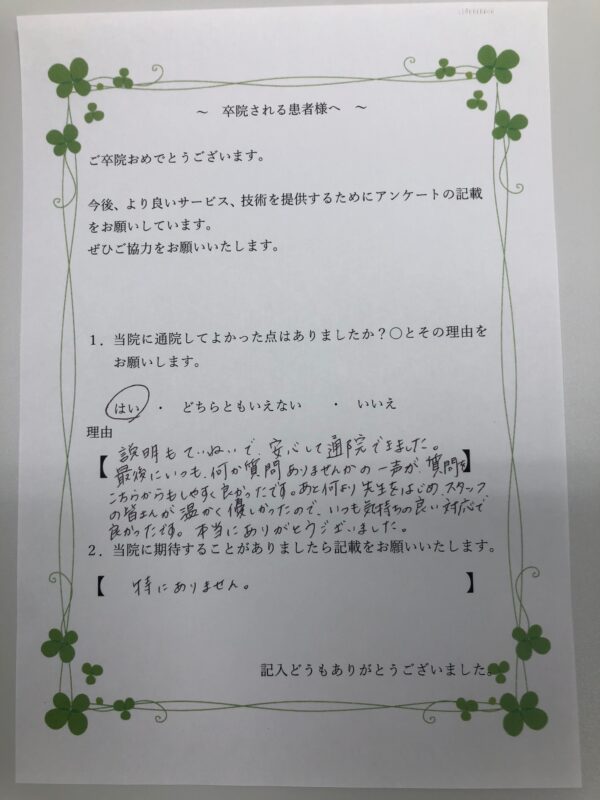 ～　卒院される患者様へ　～
ご卒院おめでとうございます。
今後、より良いサービス、技術を提供するためにアンケートの記載
をお願いしています。
ぜひご協力をお願いいたします。
１．当院に通院してよかった点はありましたか？〇とその理由を
お願いします。
はい　・　どちらともいえない　・　いいえ
理由
【説明もていねいで安心して通院できました。
最後にいつも、何か質問ありませんかの一声が、質問を】
こちらからもしやすく良かったです。あと何より先生をはじめ、スタッフ
の皆さんが温かく優しかったので、いつも気持ちの良い対応で
良かったです。本当にありがとうございました。
２．当院に期待することがありましたら記載をお願いいたします。
【　特にありません。　】
記入どうもありがとうございました。